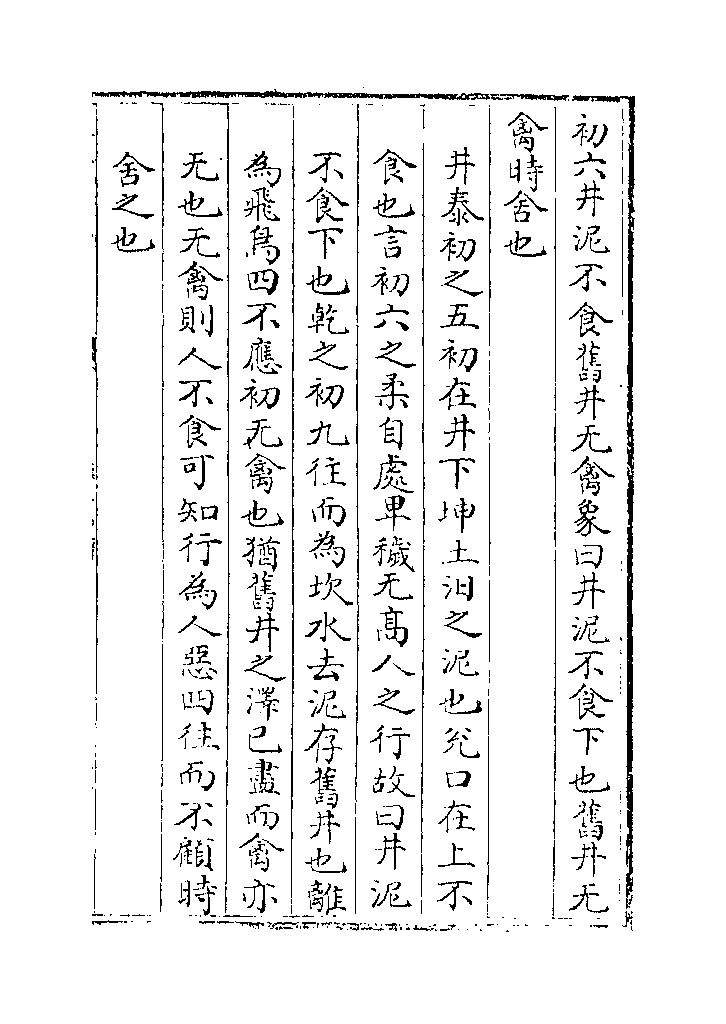 初六井泥不食舊井无禽象曰井泥不食下也舊井无
禽時舍也
井泰初之五初在井下坤土汨之泥也兊口在上不
食也言初六之柔自處卑穢无髙人之行故曰井泥
不食下也乾之初九往而為坎水去泥存舊井也離
為飛鳥四不應初无禽也猶舊井之澤已盡而禽亦
无也无禽則人不食可知行為人惡四往而不顧時
舍之也